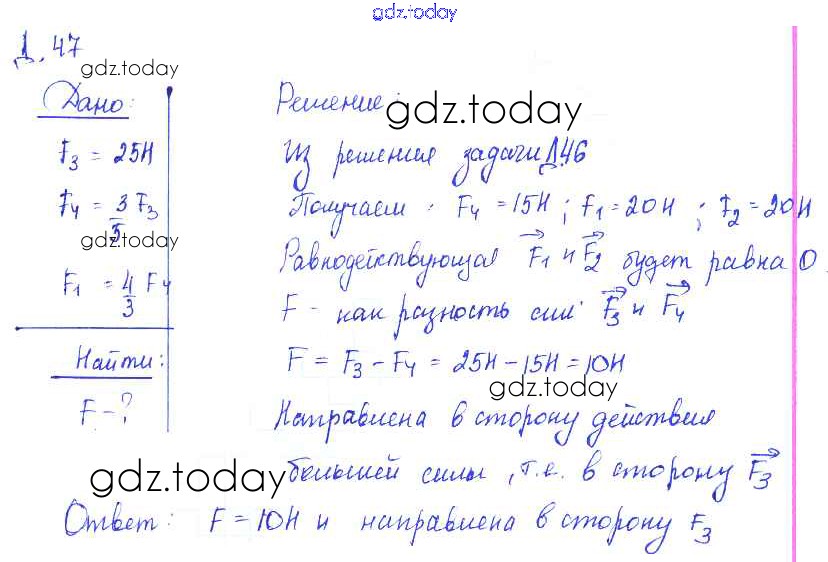 gdz.today
Д. 47
gdz.today
Дано:
F₃ = 25Н
F₄ = 3/5 F₃
gdz.today
F₁ = 4/3 F₄
Найти:
F - ?
Решение:
gdz.today
Из решения задачи Д.46
Получаем: F₄ = 15Н ; F₁ = 20Н ; F₂ = 20Н
Равнодействующая F₁ и F₂ будет равна 0.
F - как разность сил F₃ и F₄
F = F₃ - F₄ = 25Н - 15Н = 10Н
gdz.today
Направлена в сторону действия
большей силы, т.е. в сторону F₃
gdz.today
Ответ: F = 10Н и направлена в сторону F₃